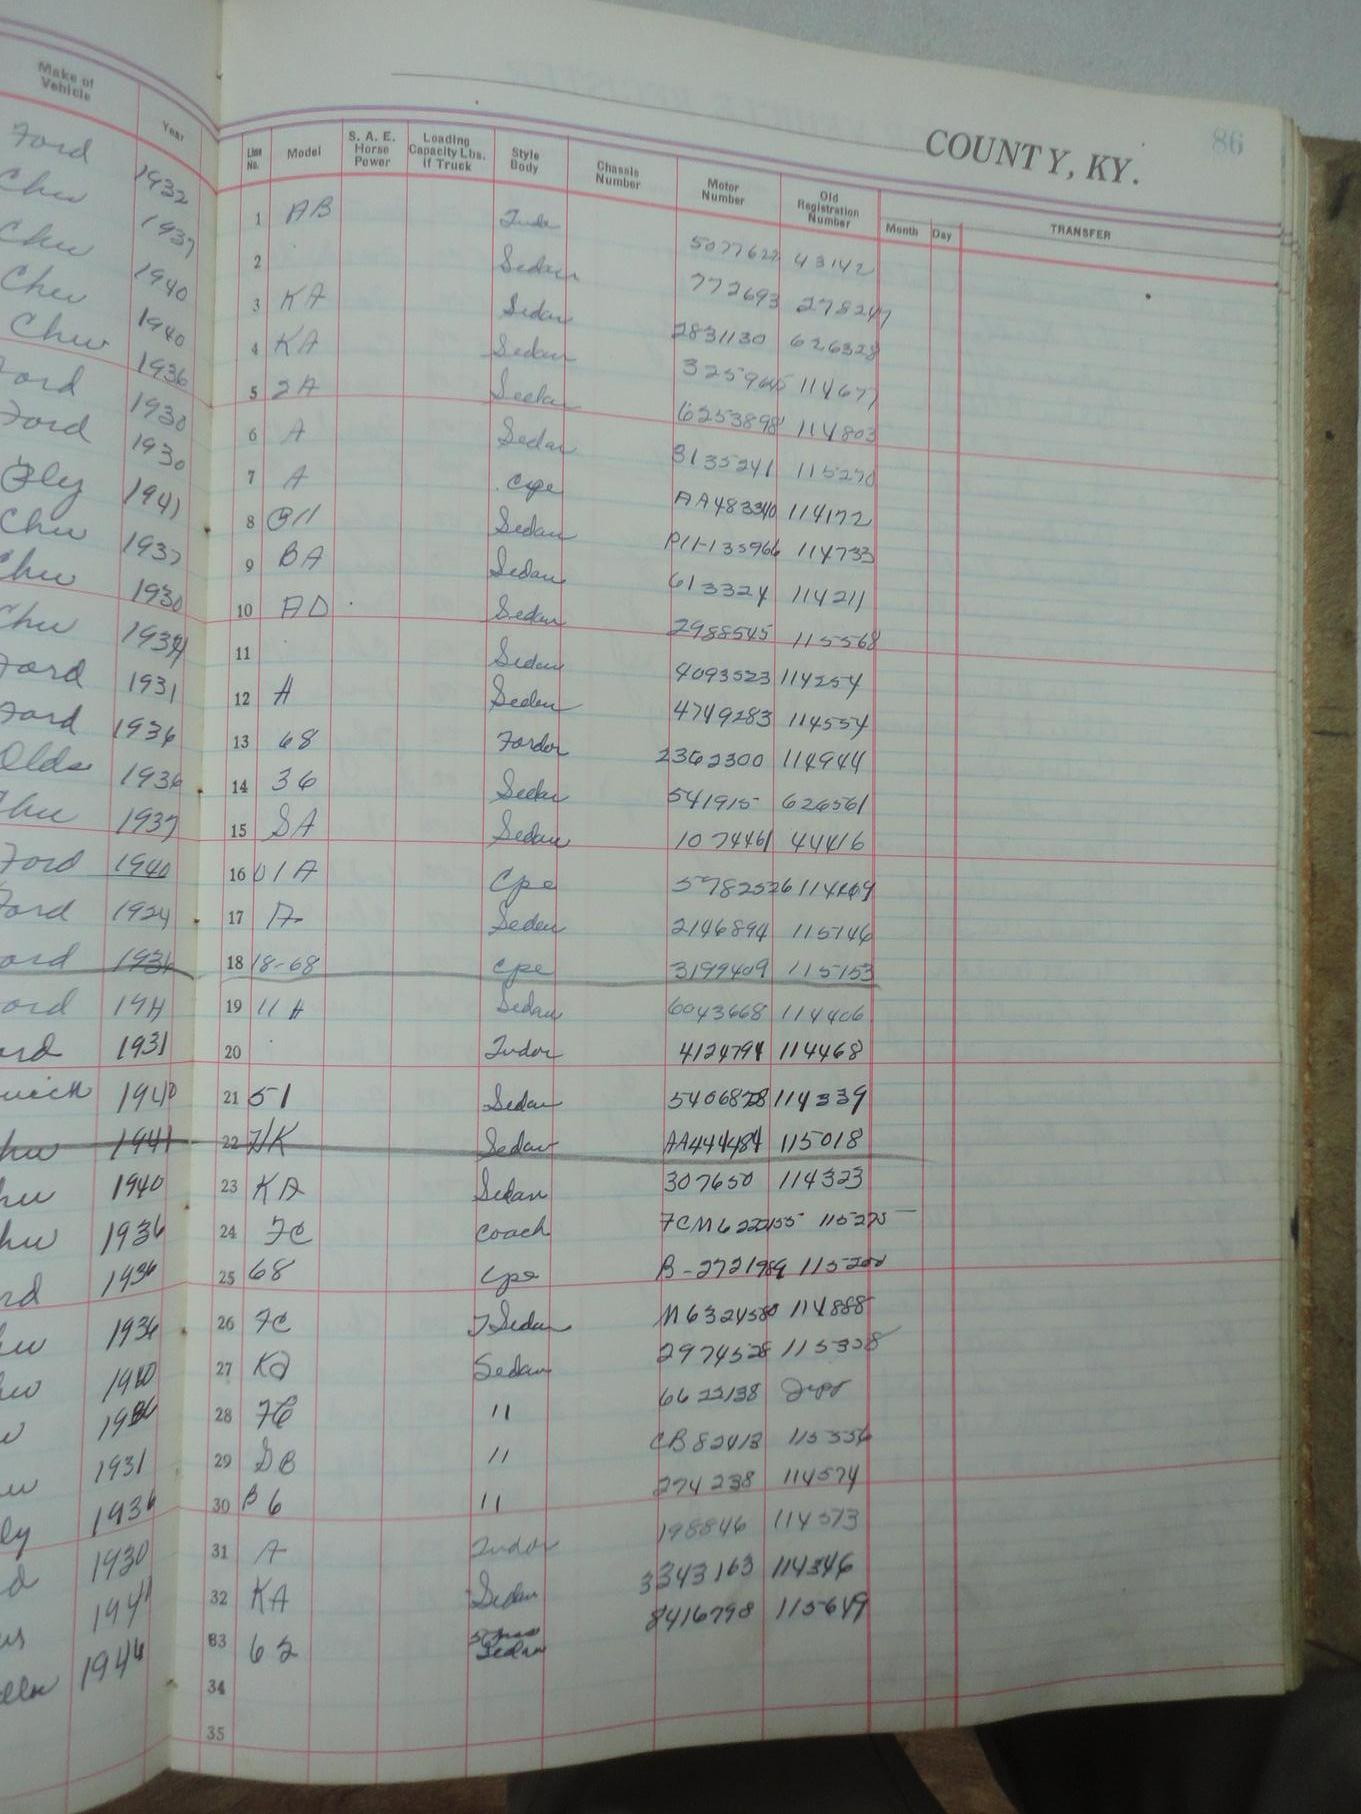 Make of Vehicle Year
COUNTY, KY. 86
Line No. Model S. A. E. Horse Power Loading Capacity Lbs. if Truck Style Body Chassis Number Motor Number Old Registration Number Month Day TRANSFER
Ford 1932 1 AB 5077627 43142
Chev 1937 2 Sedan 772693 278247
Chev 1940 3 KA Sedan 2831130 626328
Chev 1940 4 KA Sedan 114677
Chev 1936 5 2A Sedan 6253898 114803
Ford 1930 6 A Sedan 3135241 115270
Ford 1930 7 A Cpe AA483340 114172
Ply 1941 8 Sedan P11-135966 114733
Chev 1937 9 BA Sedan 613324 114211
Chev 1930 10 AD Sedan 2988545 115568
Chev 11 Sedan 4093523 114254
Ford 1931 12 A Sedan 4749283 114554
Ford 1936 13 68 Fordor 2362300 114944
Olds 1936 14 36 Sedan 541915 626561
Chev 1937 15 SA Sedan 1074461 44416
Ford 1940 16 01A Cpe 5782526
Ford 1924 17 A Sedan 2146894 115146
Ford 1936 18 18-68 Cpe 3199409 115153
Ford 19 11A Sedan 6043668 114406
1931 20 Tudor 4124794 114468
1940 21 51 Sedan 5406828 114339
1941 22 Sedan AA444484 115018
1940 23 KA Sedan 307650 114323
1936 24 FC Coach 115275
1936 25 68 Cpe B-2721989 115200
1936 26 FC T Sedan M6324580 114888
1940 27 KA Sedan 2974528 115338
28 FC " 6622138
1931 29 DB " CB82413 115556
1936 30 B6 " 274238 114574
1930 31 A Tudor 198846 114573
1941 32 KA Sedan 3343163 114346
1946 33 62 Sedan 8416798 115649
34
35